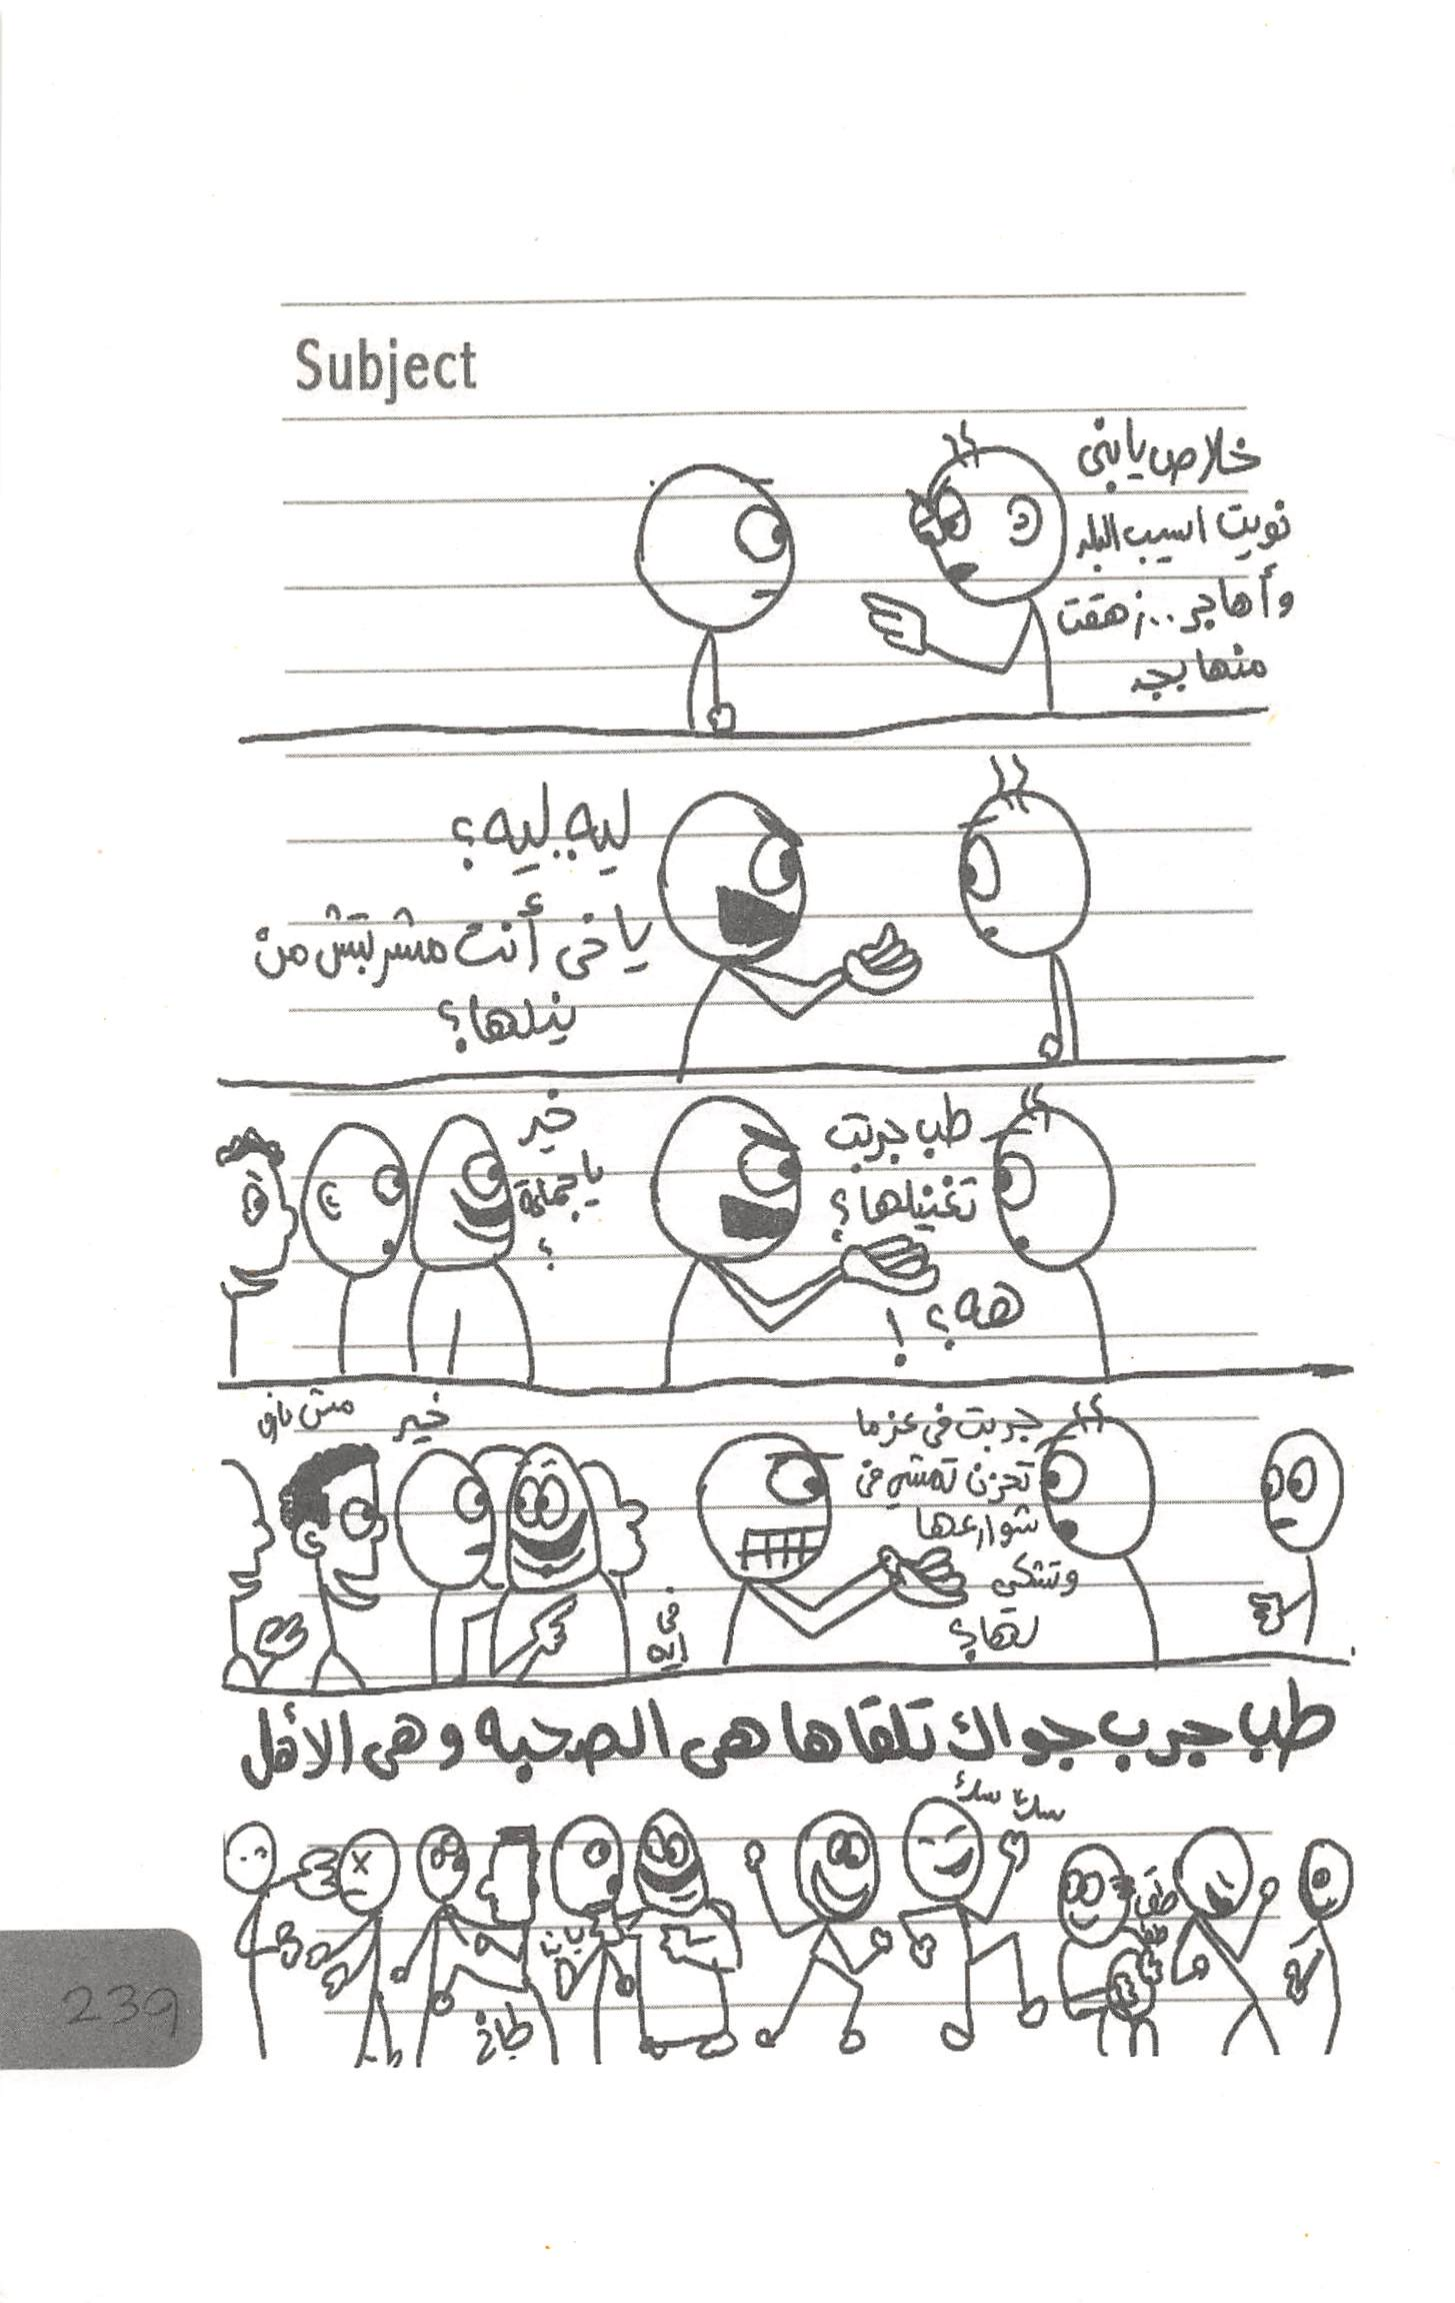 Subject
خلاص يا بنى
نويت اسيب البلد
وأهاجر... زهقت
منها بجد
ليه.. ليه؟
يا خى أنت مشربتش من
نيلها؟
خير
يا جماعة
؟
طب جربت
تغنيلها؟
هه؟!
خير
جربت فى عز ما
تحزن تمشى فى
شوارعها
وتشكى
لها؟
فى
ايه
طب جرب جواك تلقاها هى الصحبه وهى الأهل
سك سك
طاخ
239